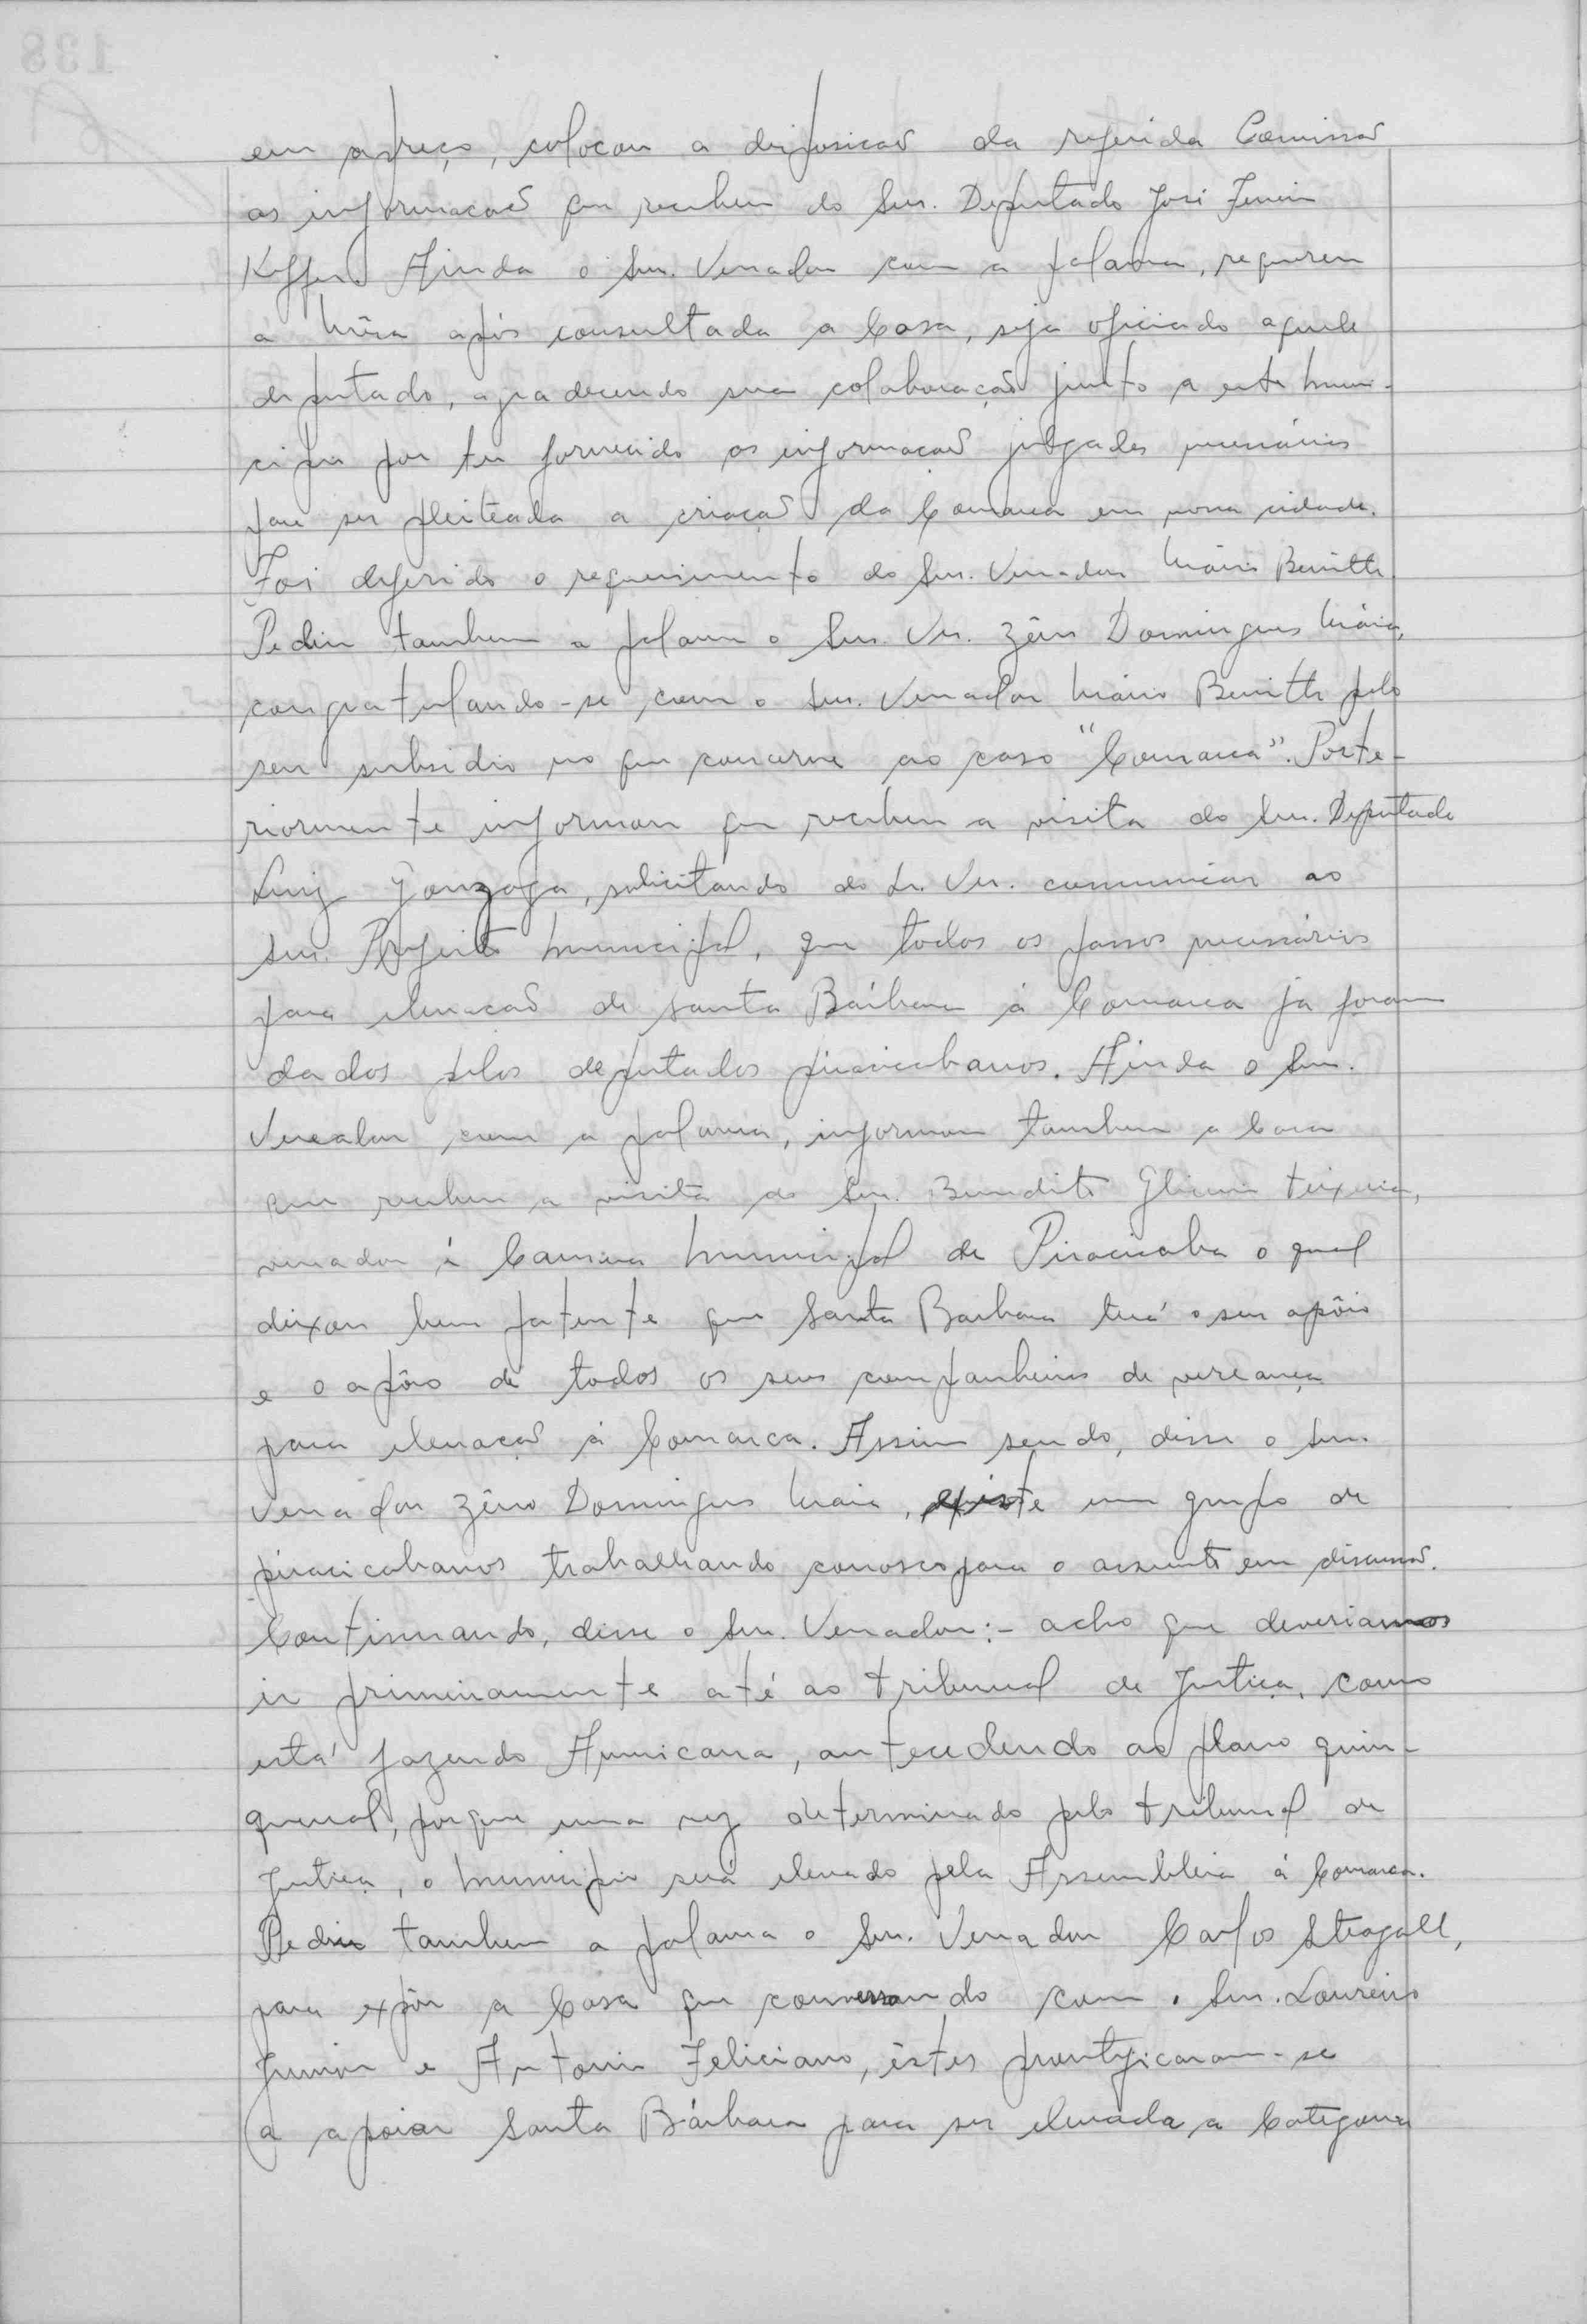 em apreço, colocou a disposicão da referida Comissão
as informacoes que recebeu do Snr. Deputado José
Ainda o Snr. Vereador com a palavra, requereu
a Mêsa após consultada a Casa, seja oficiado aquele
deputado, agradecendo sua colaboração junto a este Muni-
cipio por ter fornecido as informacoes julgadas necessárias
para ser pleiteada a criacão da Comarca em nossa cidade.
Foi deferido o requerimento do Snr. Vereador Mário Benitte.
Pediu tambem a palavra o Snr. Ver. Zêno Domingues Maia,
congratulando-se com o Snr. Vereador Mário Benitte pelo
seu subsidio no que concerne ao caso "Comarca". Poste-
riormente informou que recebeu a visita do Snr. Deputado
Luiz Gonzaga, solicitando do Sr. Ver. comunicar ao
Snr. Prefeito Municipal, que todos os passos necessários
para elevacão de Santa Bárbara á Comarca já foram
dados pelos deputados piracicabanos. Ainda o Snr.
Vereador com a palavra, informou tambem a Casa
que recebeu a visita do Snr. Benedito Glicerio Teixeira,
vereador á Camara Municipal de Piracicaba o qual
deixou bem patente que Santa Barbara terá o seu apôio
e o apôio de todos os seus companheiros de vereança
para elevação á Comarca. Assim sendo, disse o Snr.
Vereador Zêno Domingues Maia, existe um grupo de
piracicabanos trabalhando conosco para o assunto em discussão.
Continuando, disse o Snr. Vereador:- acho que deveriamos
ir primeiramente até ao Tribunal de Justiça, como
está fazendo Americana, antecedendo ao plano quin-
quenal, porque uma vez determinado pelo Tribunal de
Justiça, o Municipio será elevado pela Assembleia á Comarca.
Pediu tambem a palavra o Snr. Vereador Carlos Steagall,
para expôr a Casa que conversando com o Snr. Loureiro
Junior e Antonio Feliciano, êstes prontificaram-se
a apoiar Santa Bárbara para ser elevada a Categoria